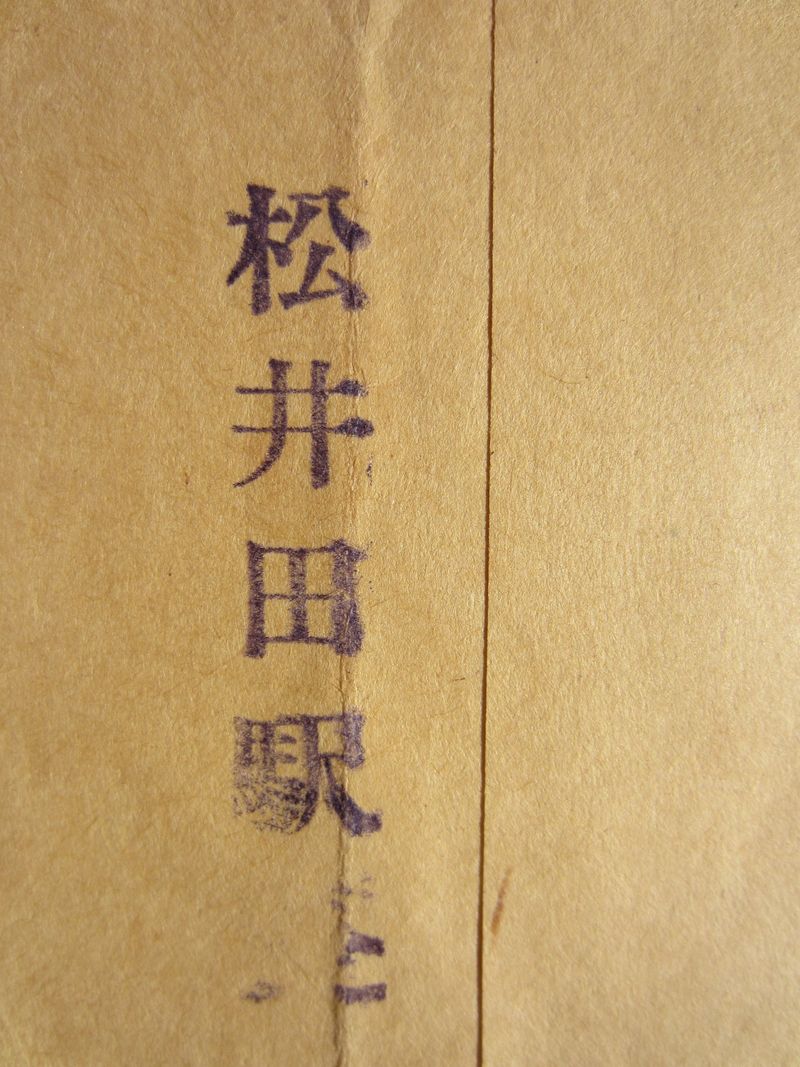 松井田駅